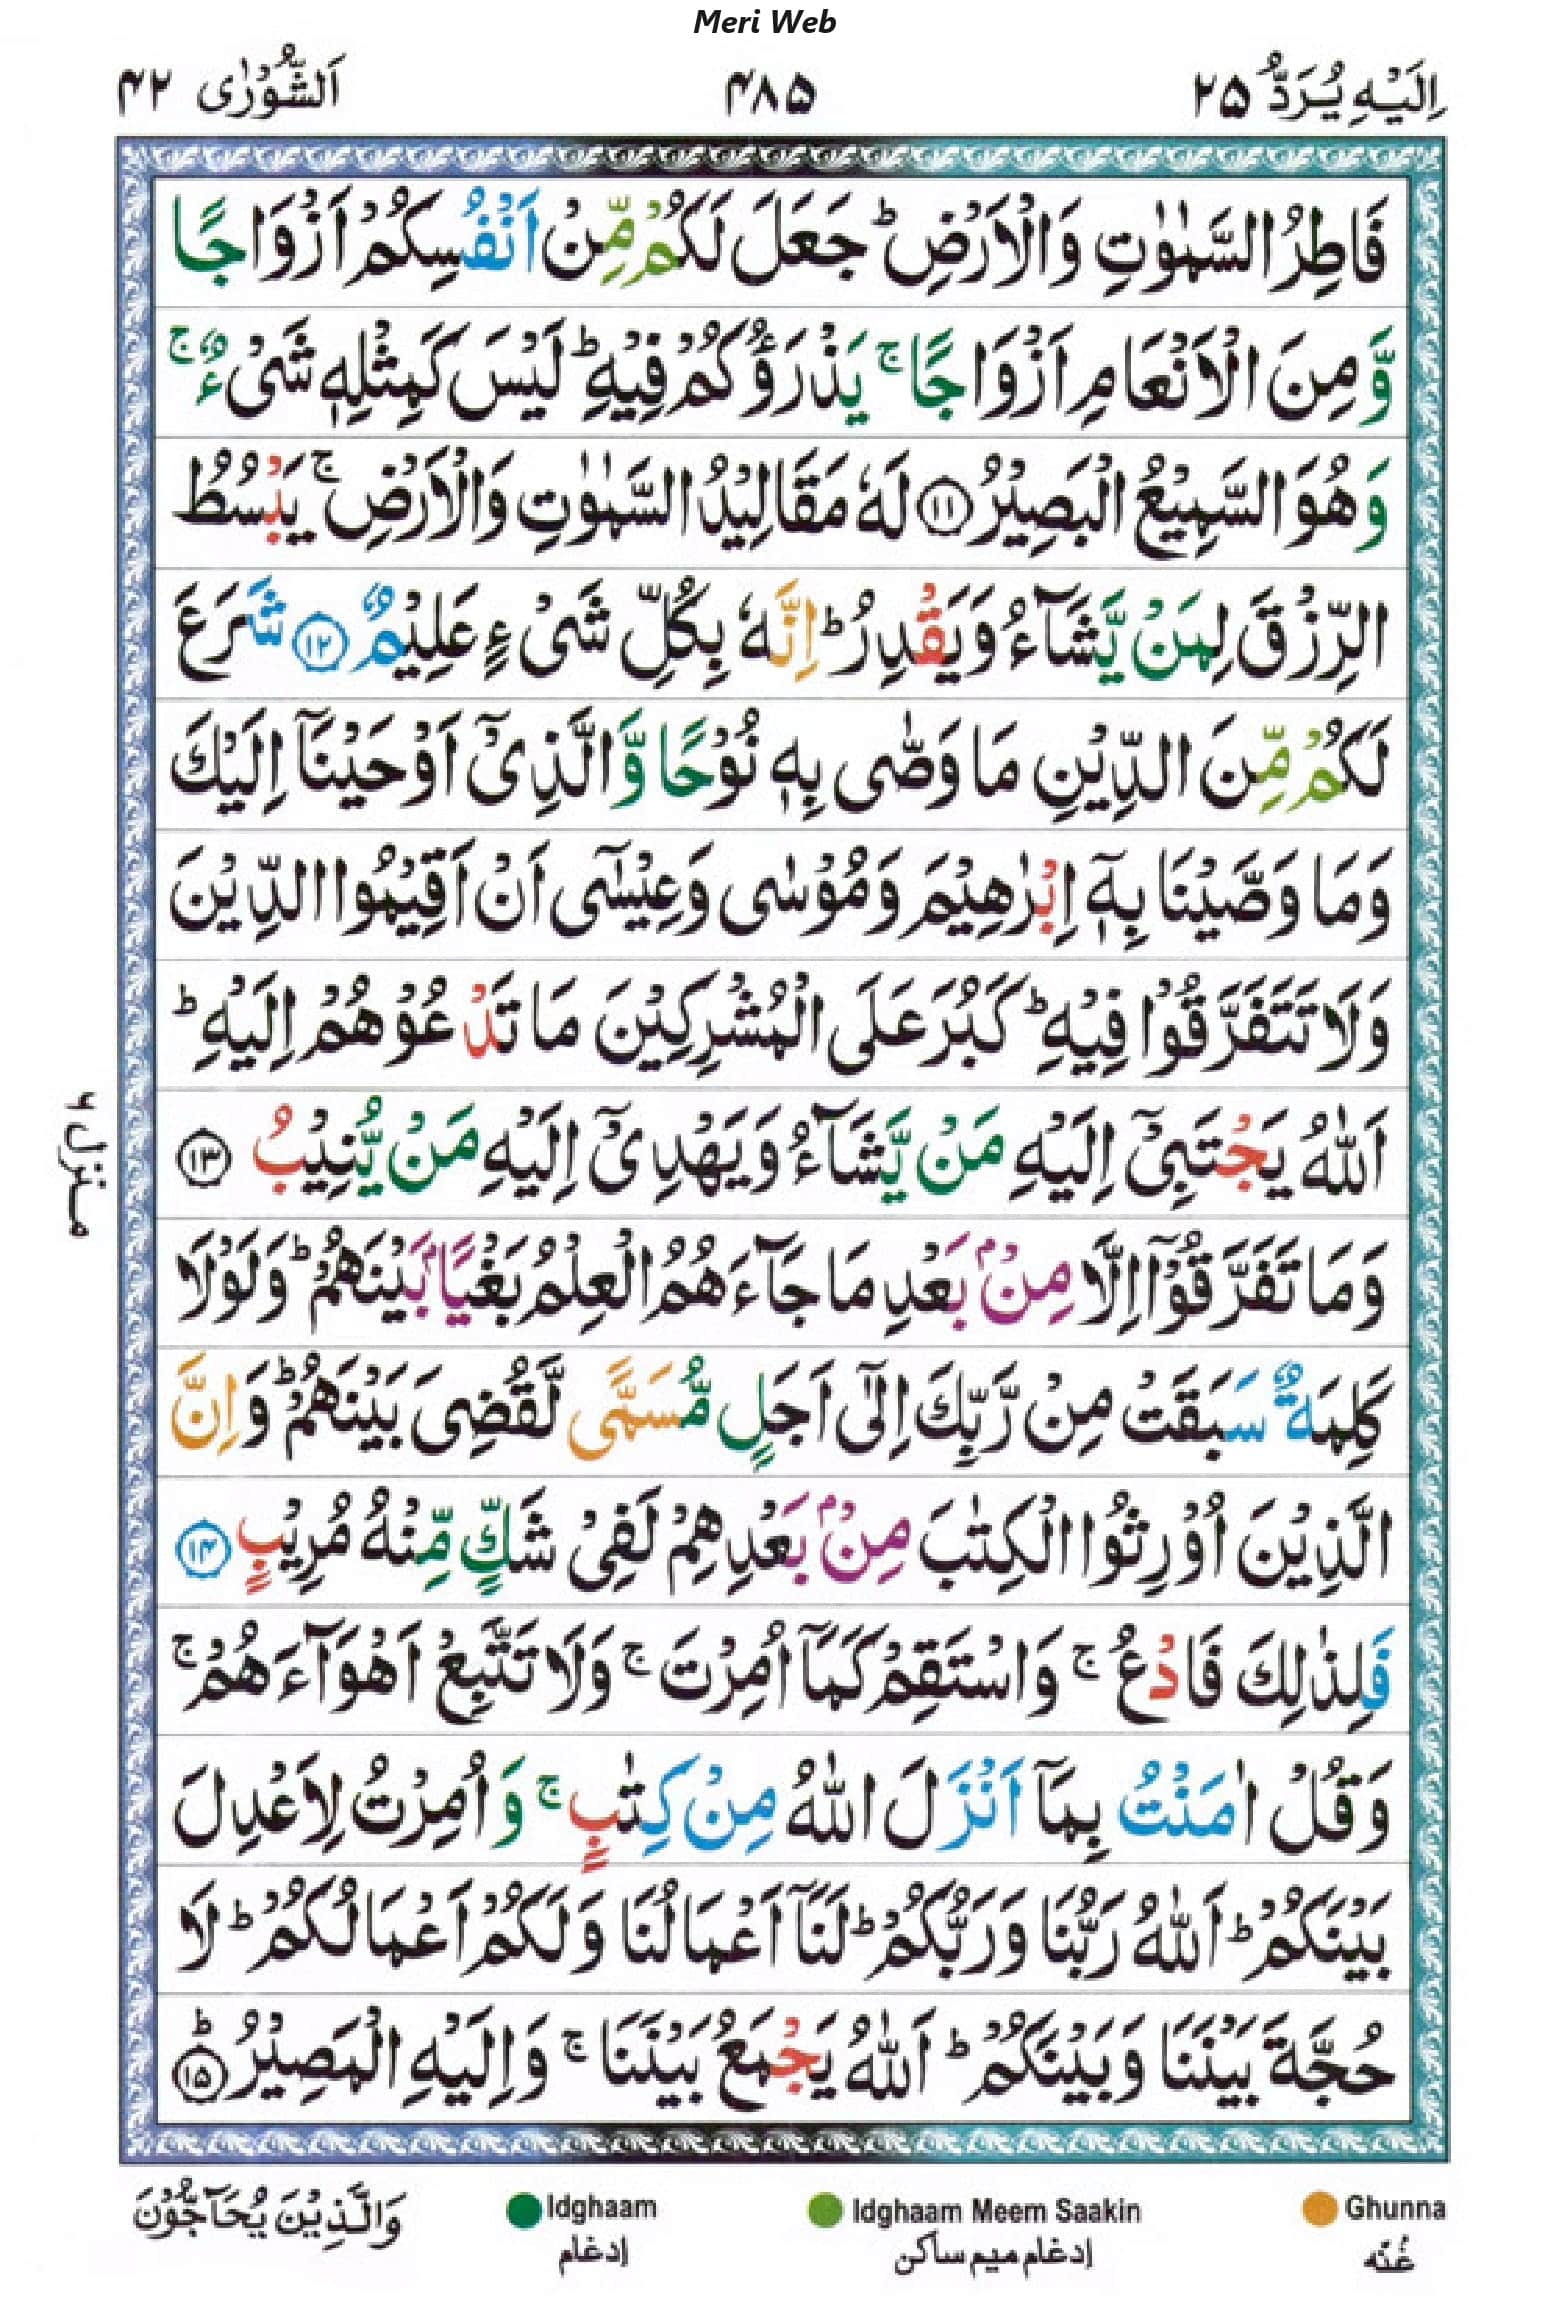 Meri Web
اِلَيْهِ يُرَدُّ ۲۵
۴۸۵
اَلشُّوْرٰى ۴۲
فَاطِرُ السَّمٰوٰتِ وَالْاَرْضِ ؕ جَعَلَ لَكُمْ مِّنْ اَنْفُسِكُمْ اَزْوَاجًا
وَّ مِنَ الْاَنْعَامِ اَزْوَاجًا ۚ يَذْرَؤُكُمْ فِيْهِ ؕ لَيْسَ كَمِثْلِهٖ شَىْءٌ ۚ
وَ هُوَ السَّمِيْعُ الْبَصِيْرُ ﴿۱۱﴾ لَهٗ مَقَالِيْدُ السَّمٰوٰتِ وَالْاَرْضِ ۚ يَبْسُطُ
الرِّزْقَ لِمَنْ يَّشَآءُ وَيَقْدِرُ ؕ اِنَّهٗ بِكُلِّ شَىْءٍ عَلِيْمٌ ﴿۱۲﴾ شَرَعَ
لَكُمْ مِّنَ الدِّيْنِ مَا وَصّٰى بِهٖ نُوْحًا وَّالَّذِىْۤ اَوْحَيْنَاۤ اِلَيْكَ
وَمَا وَصَّيْنَا بِهٖۤ اِبْرٰهِيْمَ وَمُوْسٰى وَعِيْسٰٓى اَنْ اَقِيْمُوا الدِّيْنَ
وَلَا تَتَفَرَّقُوْا فِيْهِ ؕ كَبُرَ عَلَى الْمُشْرِكِيْنَ مَا تَدْعُوْهُمْ اِلَيْهِ ؕ
اَللّٰهُ يَجْتَبِىْۤ اِلَيْهِ مَنْ يَّشَآءُ وَيَهْدِىْۤ اِلَيْهِ مَنْ يُّنِيْبُ ﴿۱۳﴾
وَمَا تَفَرَّقُوْۤا اِلَّا مِنْۢ بَعْدِ مَا جَآءَهُمُ الْعِلْمُ بَغْيًاۢ بَيْنَهُمْ ؕ وَلَوْلَا
كَلِمَةٌ سَبَقَتْ مِنْ رَّبِّكَ اِلٰٓى اَجَلٍ مُّسَمًّى لَّقُضِىَ بَيْنَهُمْ ؕ وَاِنَّ
الَّذِيْنَ اُوْرِثُوا الْكِتٰبَ مِنْۢ بَعْدِهِمْ لَفِىْ شَكٍّ مِّنْهُ مُرِيْبٍ ﴿۱۴﴾
فَلِذٰلِكَ فَادْعُ ۚ وَاسْتَقِمْ كَمَاۤ اُمِرْتَ ۚ وَلَا تَتَّبِعْ اَهْوَآءَهُمْ ۚ
وَقُلْ اٰمَنْتُ بِمَاۤ اَنْزَلَ اللّٰهُ مِنْ كِتٰبٍ ۚ وَاُمِرْتُ لِاَعْدِلَ
بَيْنَكُمْ ؕ اَللّٰهُ رَبُّنَا وَرَبُّكُمْ ؕ لَنَاۤ اَعْمَالُنَا وَلَكُمْ اَعْمَالُكُمْ ؕ لَا
حُجَّةَ بَيْنَنَا وَبَيْنَكُمْ ؕ اَللّٰهُ يَجْمَعُ بَيْنَنَا ۚ وَاِلَيْهِ الْمَصِيْرُ ؕ ﴿۱۵﴾
منزل ۶
وَالَّذِيْنَ يُحَآجُّوْنَ
Idghaam
إدغام
Idghaam Meem Saakin
إدغام ميم ساكن
Ghunna
غُنّه